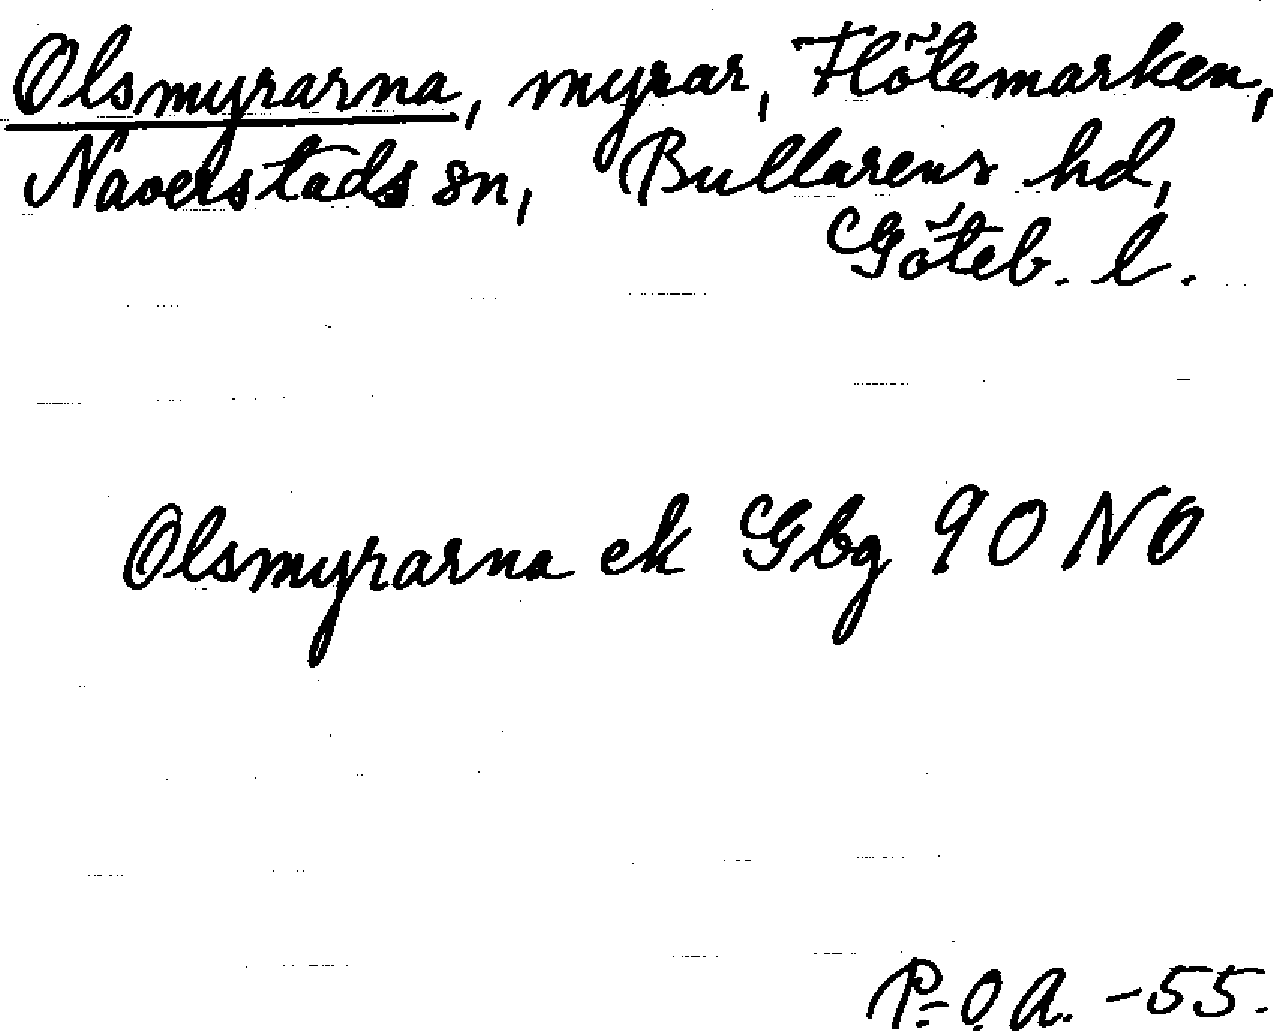 Olsmyrarna, myrar, Flötemarken,
Naverstads sn, Bullarens hd,
Göteb. l.
Olsmyrarna ek Gbg 90 NO
P.-O. A. -55.